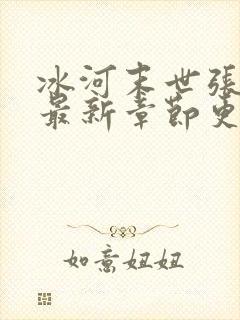 冰河末世張
最新章節更
如意妞妞